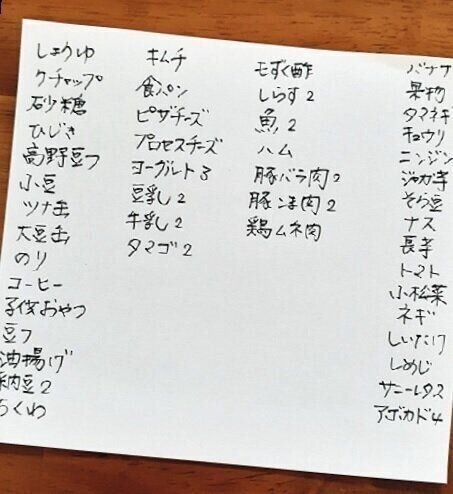 しょうゆ
ケチャップ
砂糖
ひじき
高野豆フ
小豆
ツナ缶
大豆缶
のり
コーヒー
子供おやつ
豆フ
油揚げ
納豆2
ちくわ
キムチ
食パン
ピザチーズ
プロセスチーズ
ヨーグルト3
豆乳2
牛乳2
タマゴ2
モずく酢
しらす2
魚2
ハム
豚バラ肉2
豚こま肉2
鶏ムネ肉
バナナ
果物
タマネギ
キュウリ
ニンジン
ジャガ芋
そら豆
ナス
長芋
トマト
小松菜
ネギ
しいたけ
しめじ
サニーレタス
アボカド4